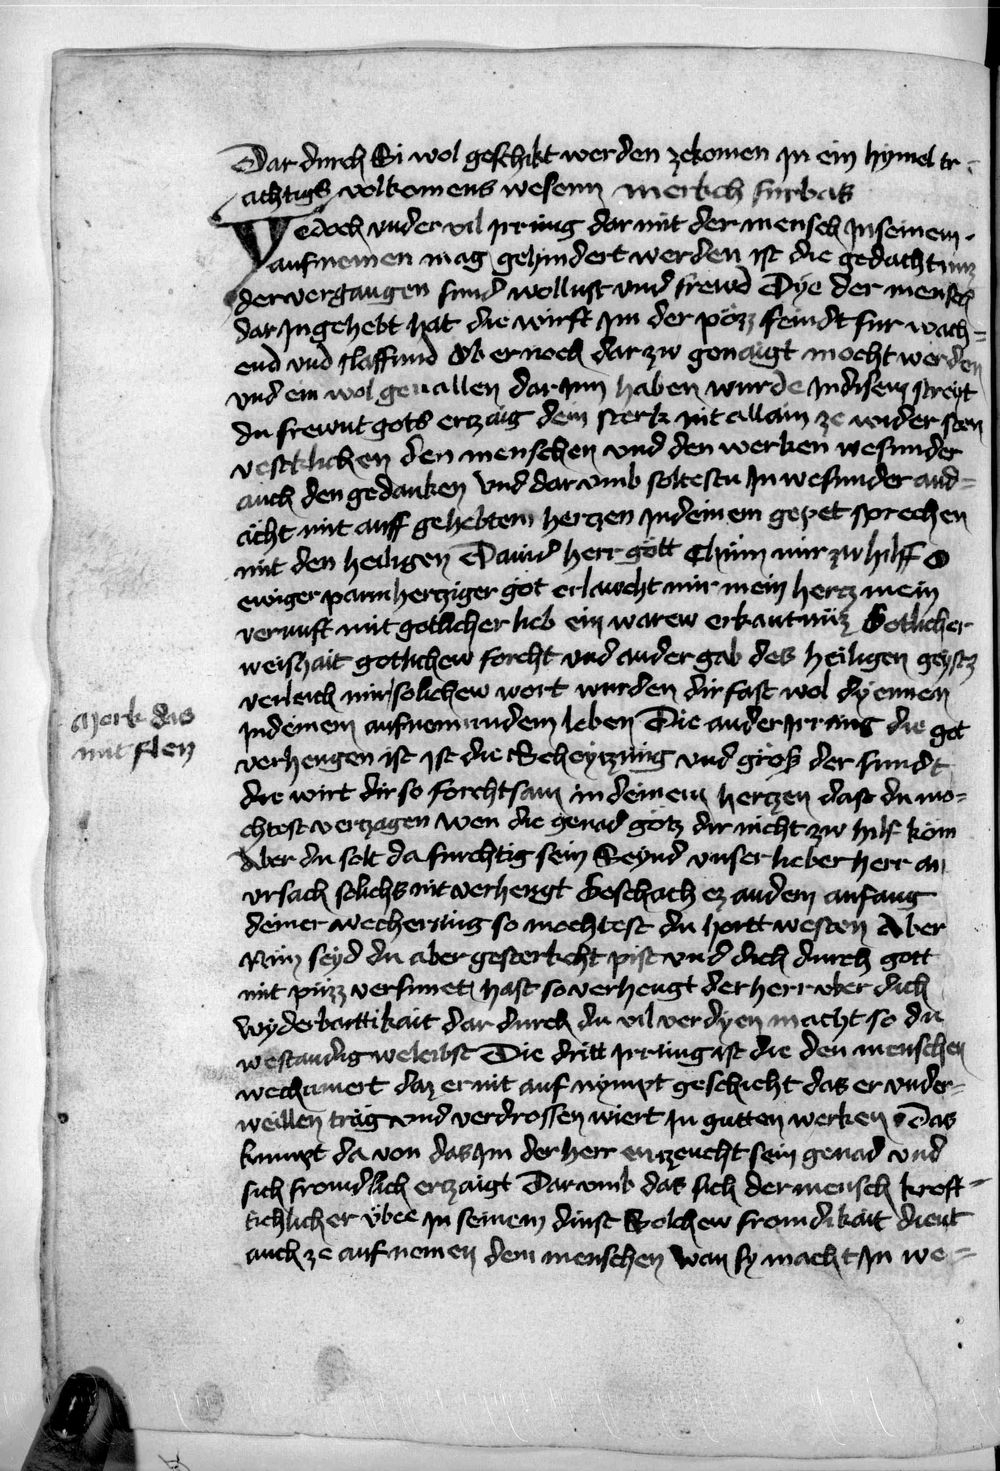 Dar durch Si wol geschikt werden zekomen Jn ein hymel tr-
achtigs volkomens wesenn merkch furbas
Yedoch vnder vil jrrung dar mit der mensch Jnseinem
aufnemen mag gehindert werden ist die gedachtnuz
der vergangen sund wollust vnd frewd Dye der mensch
dar Jngehebt hat die wirft Jm der pözz feindt fur wach=
end vnd slaffund Ob er noch dar zw genaigt mocht werden
vnd ein wol geuallen dar Jnn haben wurde Jndisem streyt
du frewnt gots ertzaig dein sterk nit allain ze wider sten
vestklichen den menschen vnd den werken wesunder
auch den gedanken Vnd dar vmb soltestu Jn wesunder and=
acht mit auff gehebtem hertzen Jndeinem gepet sprechen
mit den heiligen Dauid herr gött Chüm mir zw hilff O
ewiger parmhertziger got erlawcht mir mein hertz mein
vernuft mit gotlicher lieb ein warew erkantnüz Gotlicher
weishait gotlichew forcht vnd ander gab des heiligen geystz
verleich mir solichew wort wurden dir fast wol dyennen
Jndeinem aufnemundem leben Die ander Jrrung die got
verhengen ist ist die Scheytzung vnd größ der sundt
die wirt dir so forchtsam in deinem hertzen dast du mo=
chtest vertzagen wen die genad götz dir nicht zw hilf köm
Aber du solt da furchtig sein Seynd vnser lieber herr an
vrsach solichs nit verhengt Geschach ez an dem anfang
deiner wecherung so mochtest du hortt westen Aber
Nun seyd du aber gesterkcht pist vnd dich durch gott
mit püzz versunet hast so verhengt der herr vber dich
wyderbarttikait dar durch du vil verdyen macht so du
westandig weleibst Die dritt Jrrung ist die den menschen
wechumert daz er nit auf nympt geschicht das er vnder=
weillen träg vnd verdrossen wiert Jn gutten werken Das
kumpt da von das Jm der herr entzeucht sein genad vnd
sich fromdlich ertzaigt Dar vmb das sich der mensch kreft=
tichlicher vbee Jn seinem dinst Solchew fromdikait dient
auch ze aufnemen dem menschen Wan sy macht Jn we=
Merk das
mit flen